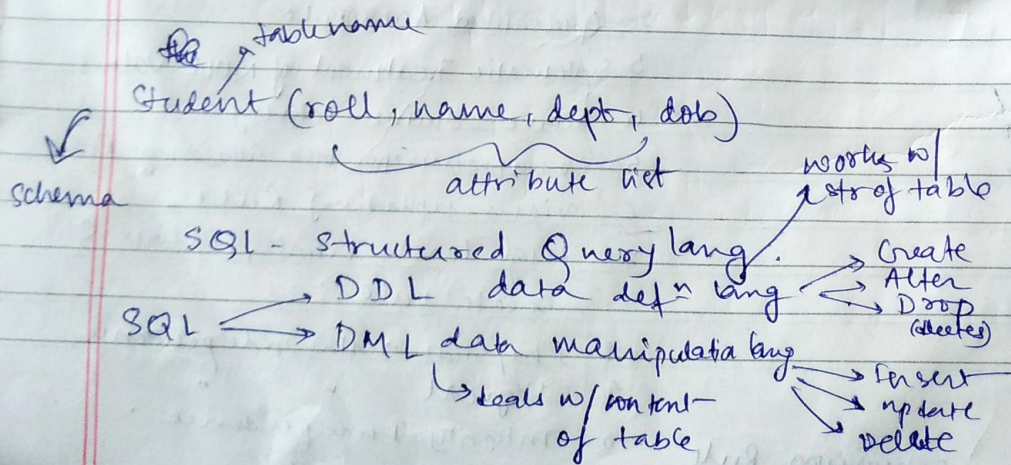 tablename
Student (roll, name, dept, dob)
schema
attribute list
works w/
str of table
SQL - Structured Query lang.
SQL
DDL data defⁿ lang
Create
Alter
Drop
(deletes)
DML data manipulatia lang
Insert
update
Delete
deals w/ content
of table